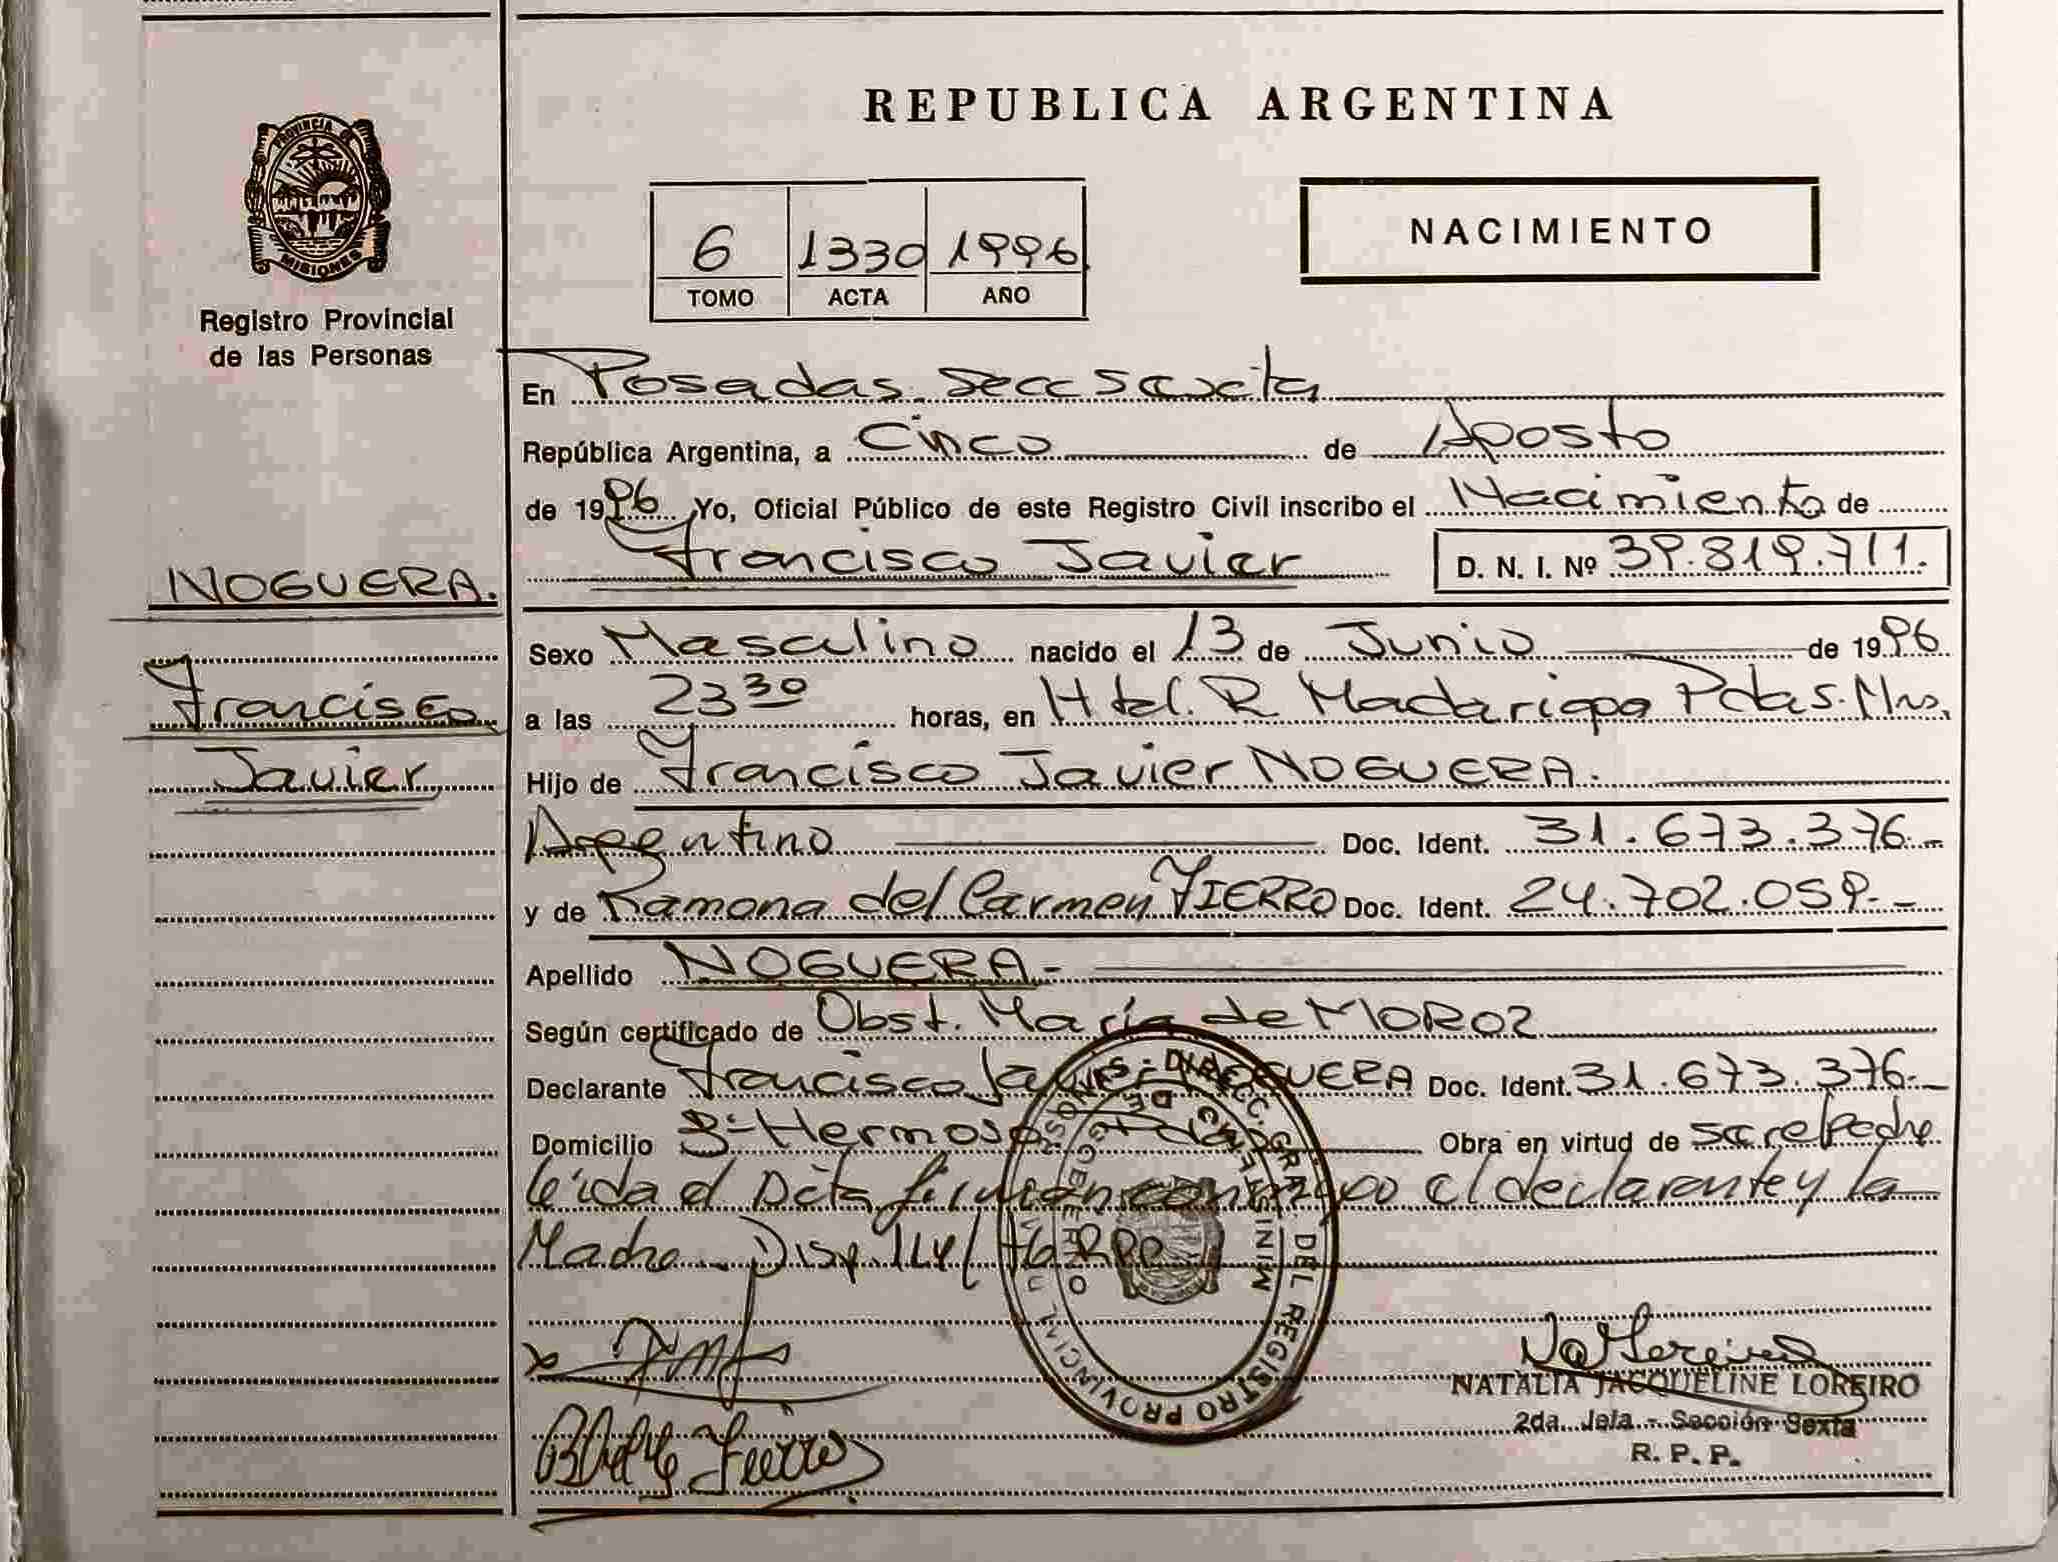 REPUBLICA ARGENTINA
PROVINCIA DE
MISIONES
Registro Provincial
de las Personas
6 1330 1996
TOMO ACTA AÑO
NACIMIENTO
En Posadas. Secc Sexta
República Argentina, a Cinco de Agosto
de 1996 Yo, Oficial Público de este Registro Civil inscribo el Nacimiento de
Francisco Javier D. N. I. Nº 39.819.711.
NOGUERA.
Francisco
Javier
Sexo Masculino nacido el 13 de Junio de 1996
a las 23 30 horas, en Htal. R. Madariaga Pdas. Mns.
Hijo de Francisco Javier NOGUERA.
Argentino Doc. Ident. 31.673.376.-
y de Ramona del Carmen FIERRO Doc. Ident. 24.702.059.-
Apellido NOGUERA.-
Según certificado de Obst. María de MOROZ
Declarante Francisco Javier NOGUERA Doc. Ident. 31.673.376.-
Domicilio Bº Hermoso Pdas Obra en virtud de ser el Padre
leída el Acta firman conmigo el declarante y la
Madre. Disp. RPP
DIRECC. GRAL. DEL REGISTRO PROVINCIAL DE LAS PERSONAS
MINISTERIO DE GOBIERNO
NATALIA JACQUELINE LOREIRO
2da. Jefa - Sección Sexta
R. P. P.